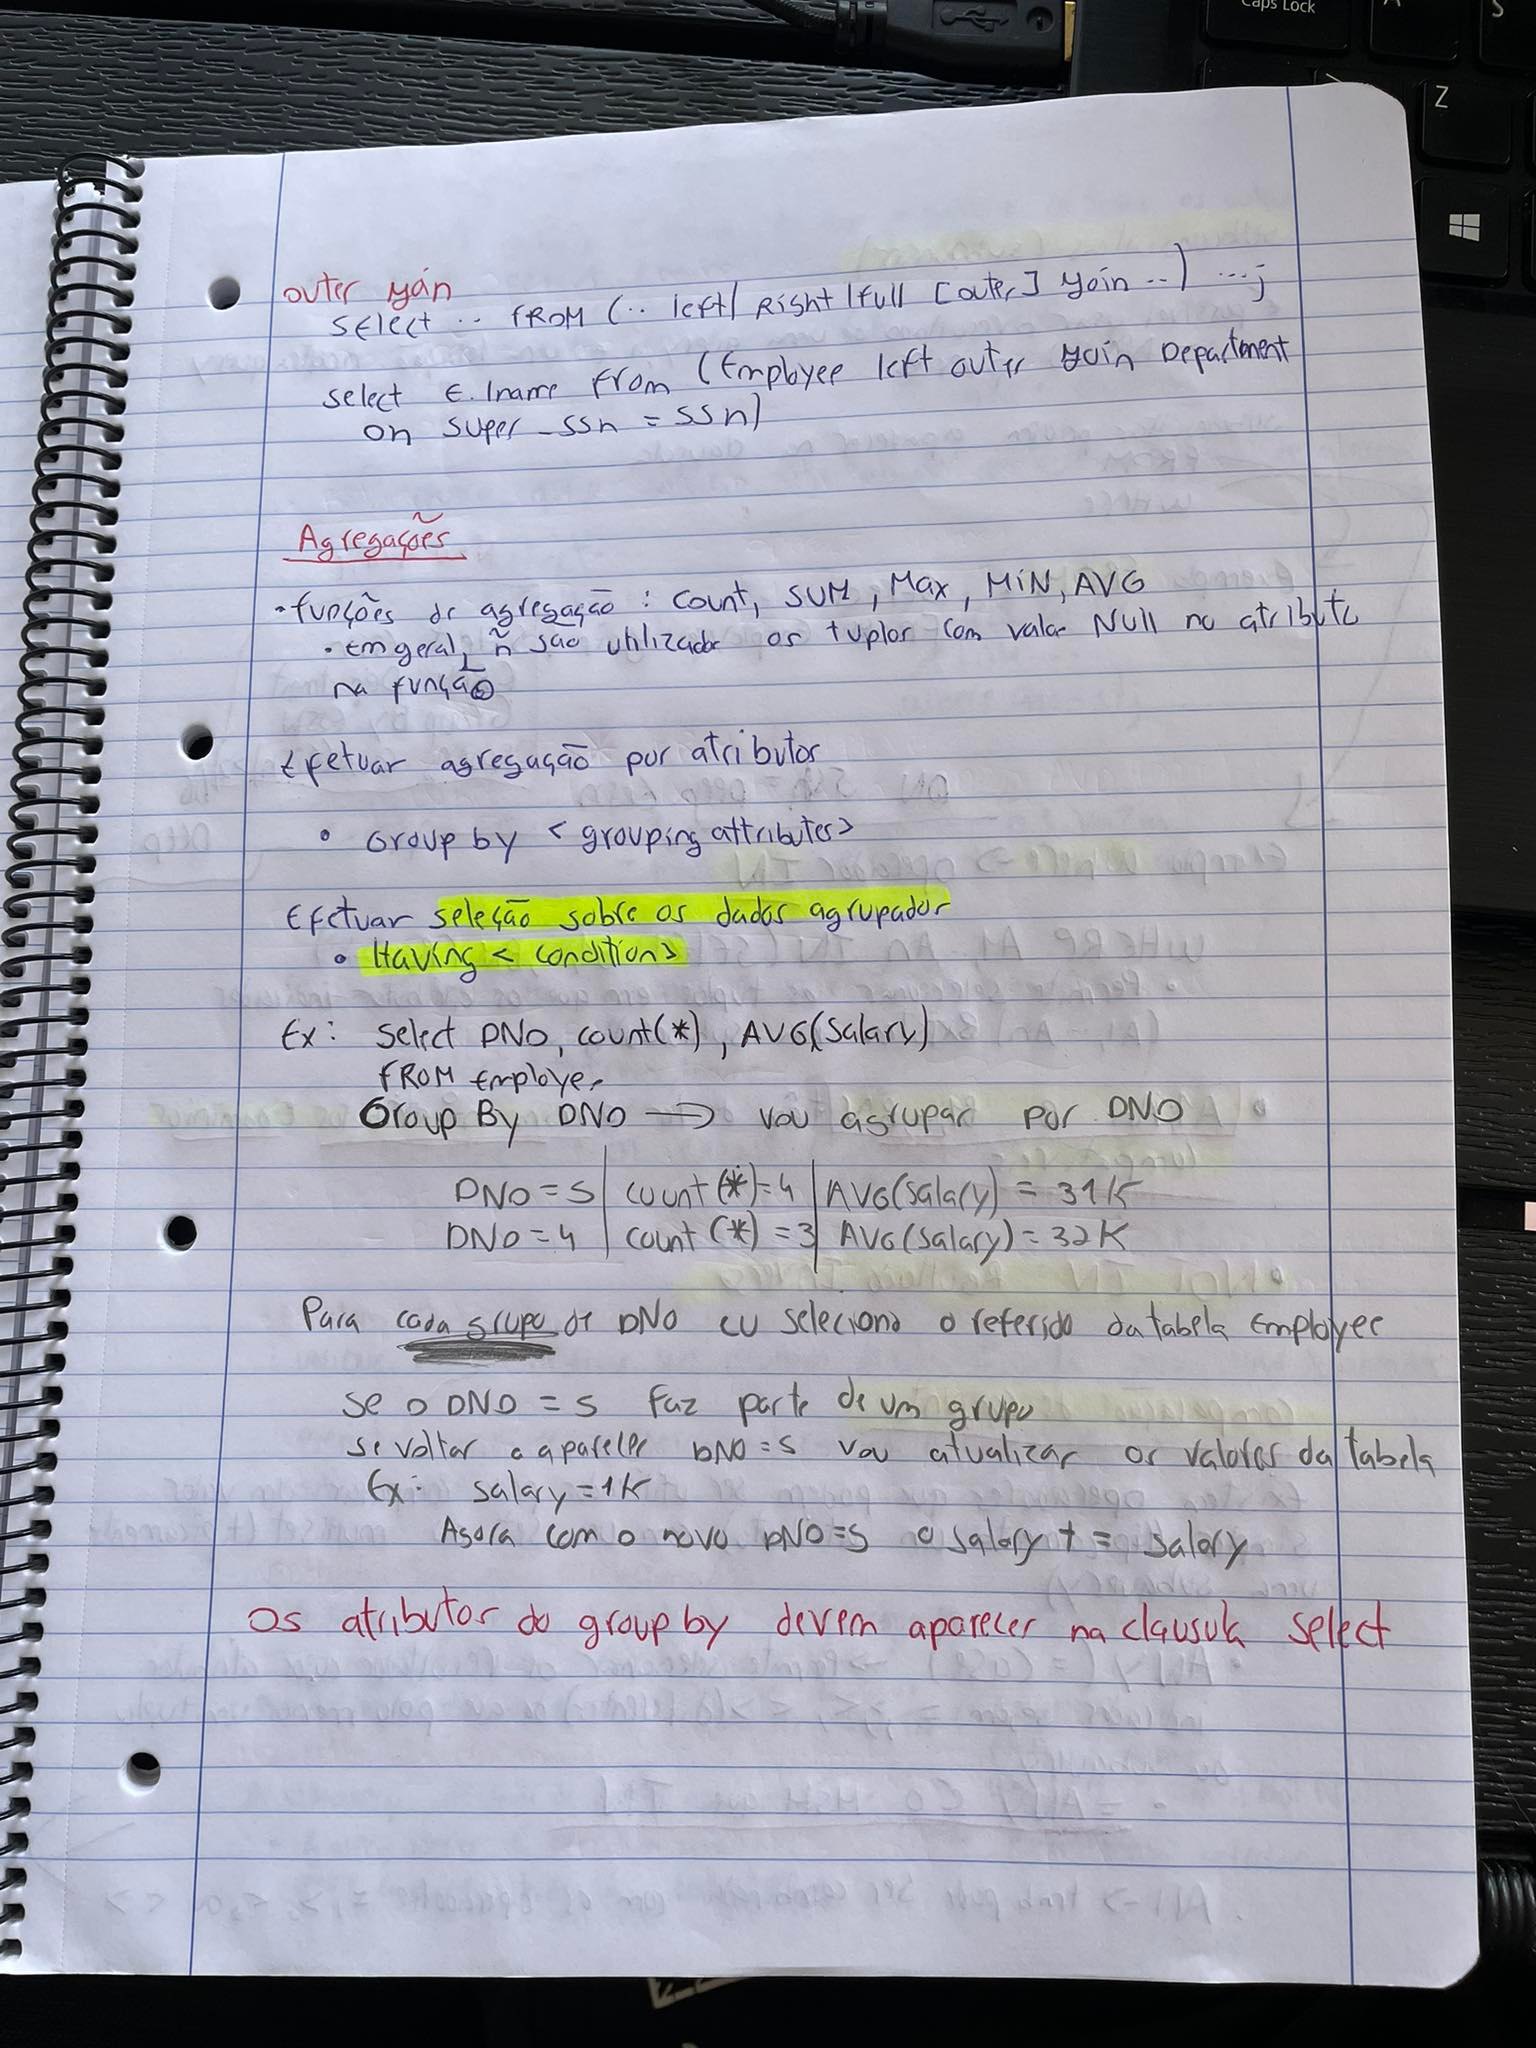 Caps Lock
A
S
Z
outer yoin
select .. FROM (.. left/ Right /full [outer] yoin ..) ...;
select E.lname From (Employee left outer yoin Department
on super_ssn = ssn)
Agregações
• funções de agregação : count, SUM, Max, MIN, AVG
• Em geral, ñ são utilizados os tuplos com valor Null no atributo
na função
Efetuar agregação por atributos
• Group by < grouping attributes>
Efetuar seleção sobre os dados agrupados
• Having < condition>
Ex: select DNO, count(*), AVG(salary)
FROM Employee
Group By DNO → vou agrupar por DNO
DNO = 5 | count (*) = 4 | AVG(salary) = 31K
DNO = 4 | count (*) = 3 | AVG(salary) = 32K
Para cada grupo de DNO eu seleciono o referido da tabela Employee
se o DNO = 5 faz parte de um grupo
se voltar a aparecer DNO = 5 vou atualizar os valores da tabela
Ex: salary = 1K
Agora com o novo DNO = 5 o salary + = salary
Os atributos do group by devem aparecer na clausula select